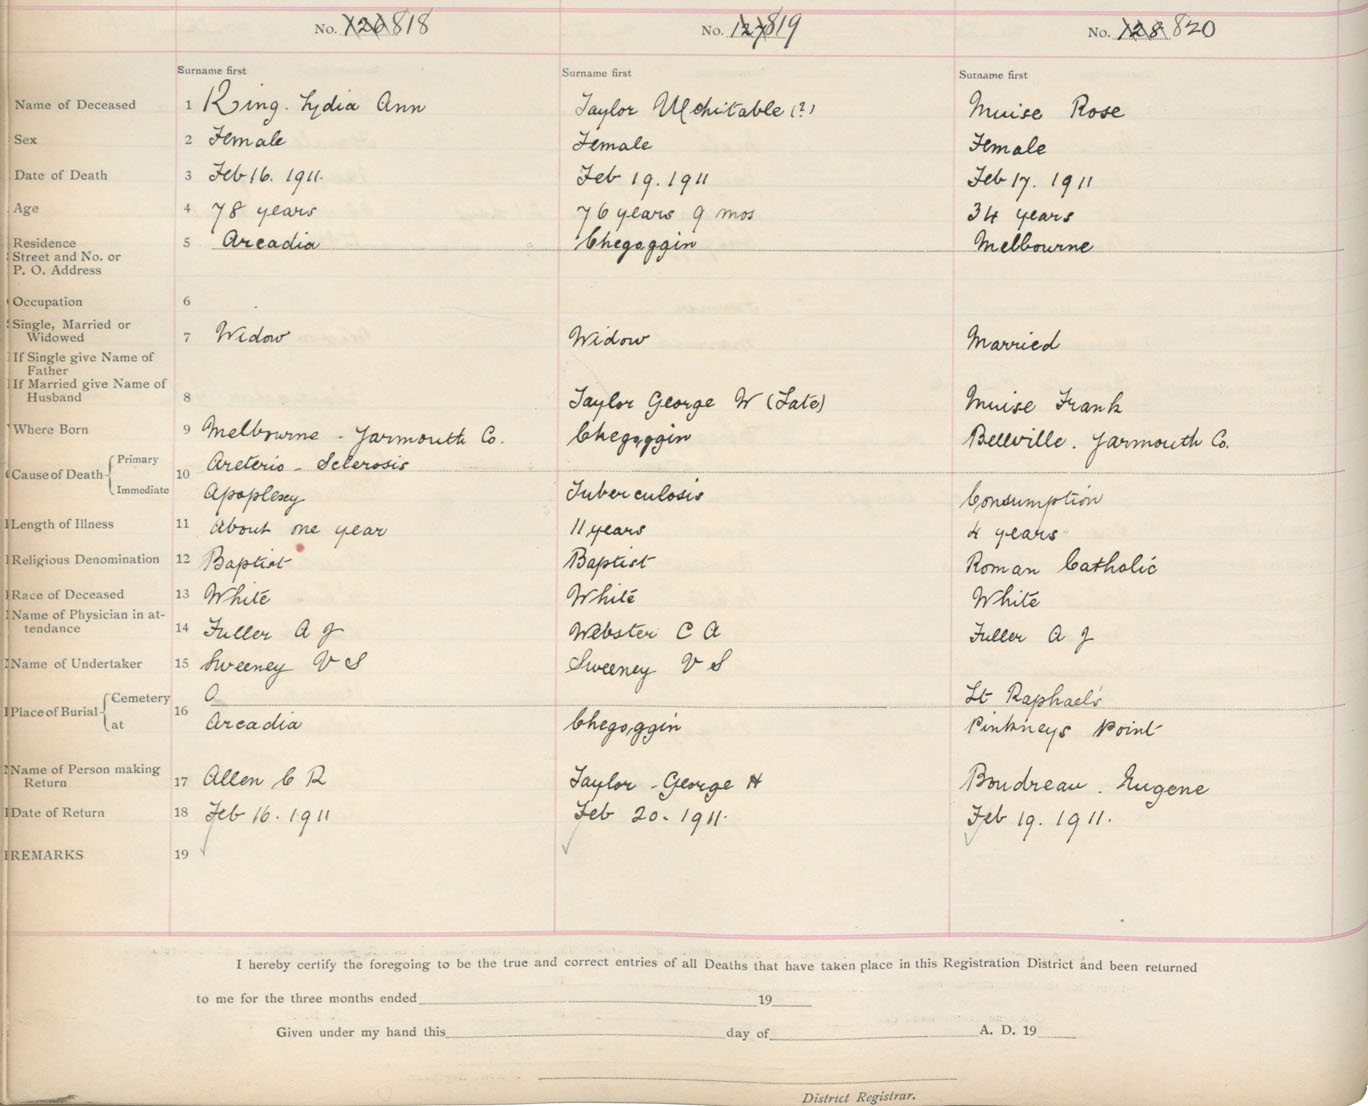 No. 126 818 No. 127 819 No. 128 820
Surname first Surname first Surname first
Name of Deceased 1 King. Lydia Ann Taylor Mehitable (?) Muise Rose
Sex 2 Female Female Female
Date of Death 3 Feb 16. 1911. Feb 19. 1911 Feb 17. 1911
Age 4 78 years 76 years 9 mos 34 years
Residence 5 Arcadia Chegoggin Melbourne
Street and No. or
P. O. Address
Occupation 6
Single, Married or
Widowed 7 Widow Widow Married
If Single give Name of
Father
If Married give Name of
Husband 8 Taylor George W (Late) Muise Frank
Where Born 9 Melbourne - Yarmouth Co. Chegoggin Bellville. Yarmouth Co.
Cause of Death Primary 10 Areterio - Sclerosis
Immediate Apoplexy Tuberculosis Consumption
Length of Illness 11 About one year 11 years 4 years
Religious Denomination 12 Baptist Baptist Roman Catholic
Race of Deceased 13 White White White
Name of Physician in at-
tendance 14 Fuller A J Webster C A Fuller A J
Name of Undertaker 15 Sweeney V S Sweeney V S
Place of Burial Cemetery 16 St Raphael's
at Arcadia Chegoggin Pinkneys Point
Name of Person making
Return 17 Allen C R Taylor - George H Boudreau. Eugene
Date of Return 18 Feb 16. 1911 Feb 20. 1911. Feb 19. 1911.
REMARKS 19
I hereby certify the foregoing to be the true and correct entries of all Deaths that have taken place in this Registration District and been returned
to me for the three months ended 19
Given under my hand this day of A. D. 19
District Registrar.